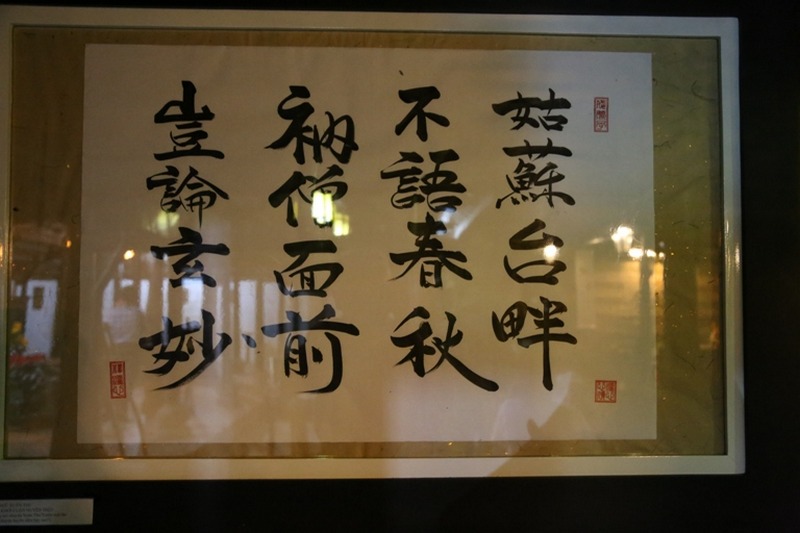 姑蘇台畔
不語春秋
衲僧面前
豈論玄妙